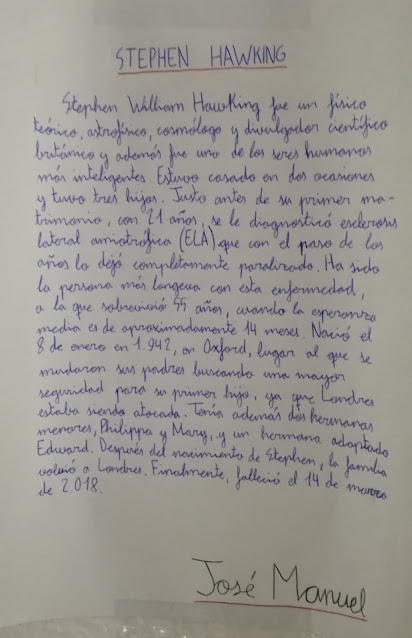 STEPHEN HAWKING
Stephen William Hawking fue un físico
teórico, astrofísico, cosmólogo y divulgador científico
británico y además fue uno de los seres humanos
más inteligentes. Estuvo casado en dos ocasiones
y tuvo tres hijos. Justo antes de su primer ma-
trimonio, con 21 años, se le diagnosticó esclerosis
lateral amiotrófica (ELA) que con el paso de los
años lo dejó completamente paralizado. Ha sido
la persona más longeva con esta enfermedad,
a la que sobrevivió 55 años, cuando la esperanza
media es de aproximadamente 14 meses. Nació el
8 de enero en 1.942, en Oxford, lugar al que se
mudaron sus padres buscando una mayor
seguridad para su primer hijo, ya que Londres
estaba siendo atacada. Tenía además dos hermanas
menores, Philippa y Mary, y un hermano adoptado
Edward. Después del nacimiento de Stephen, la familia
volvió a Londres. Finalmente, falleció el 14 de marzo
de 2.018.
José Manuel